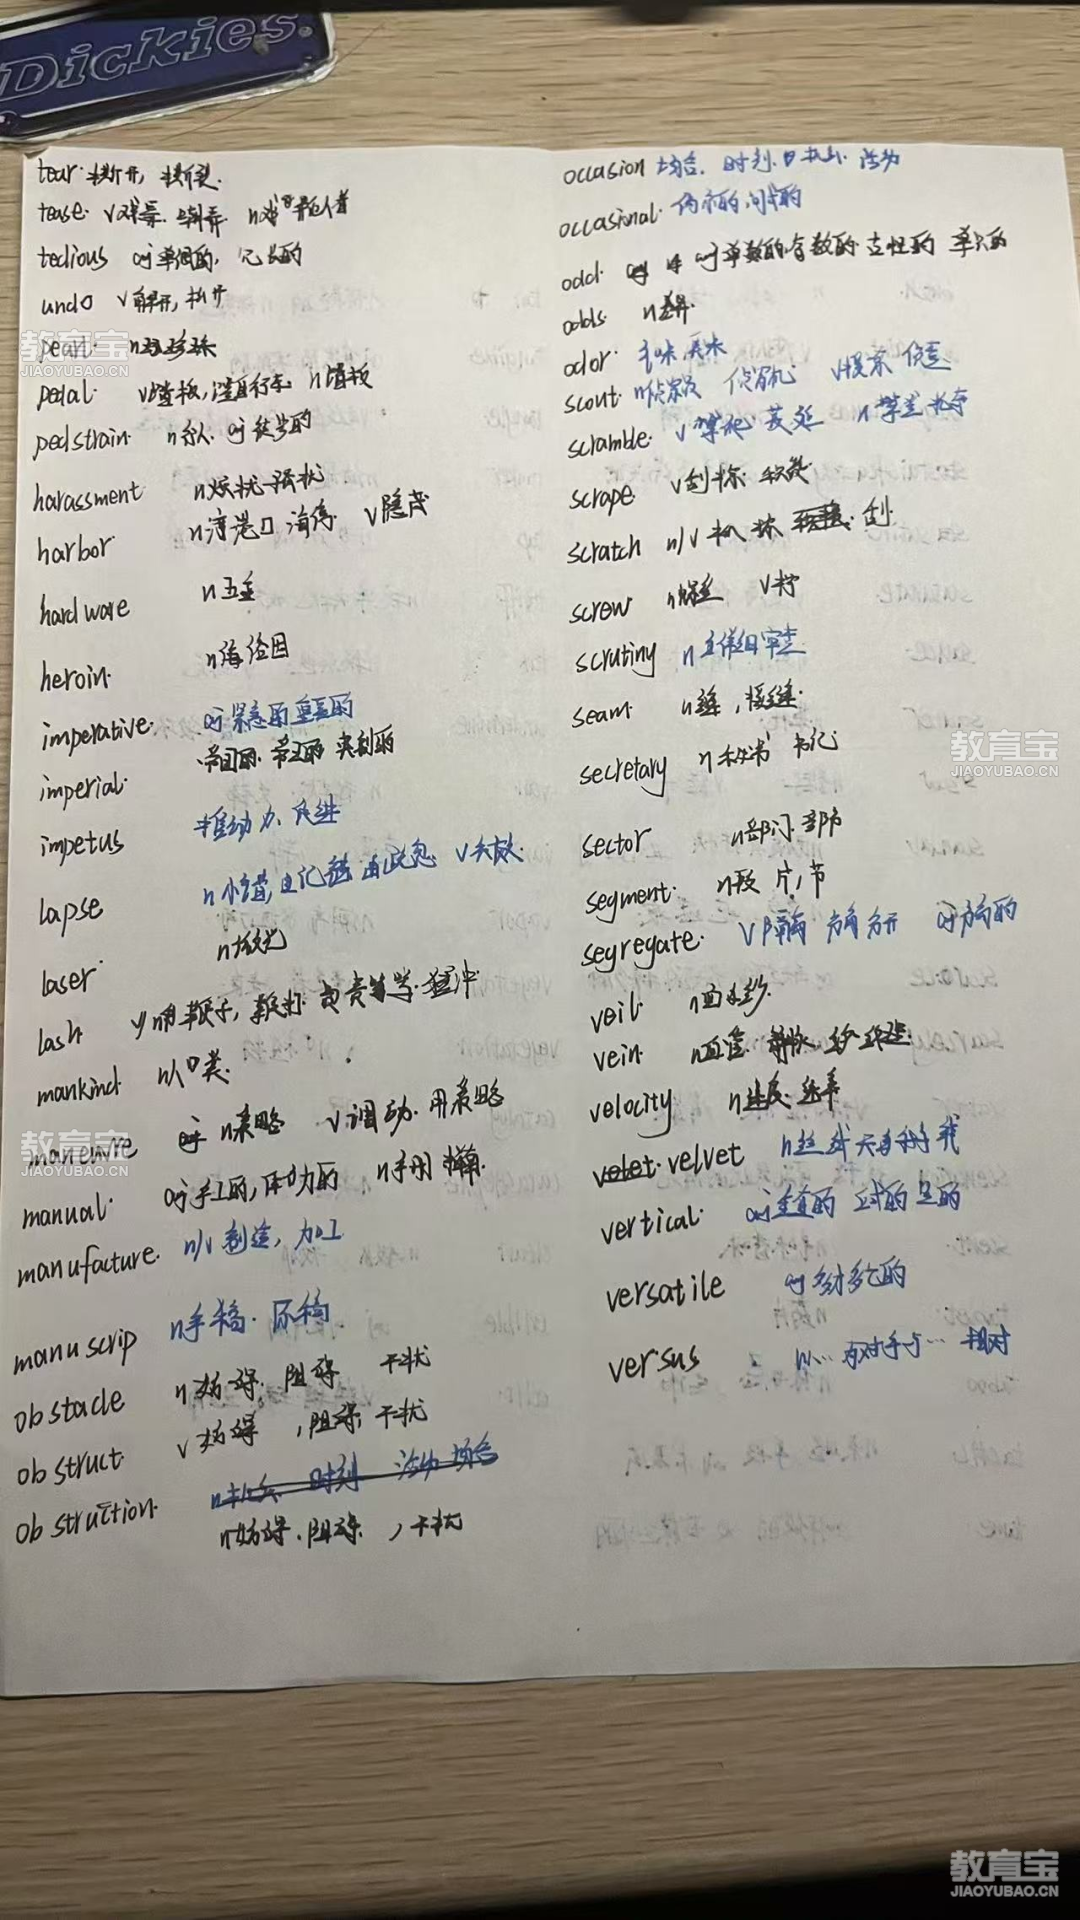 Dickies.
tear. 扯开, 撕裂.
tease. v戏弄. n戏
tedious adj单调的, 冗长的
undo v解开, 打开
pearl. n珍珠
pedal. v踏板, 自行车 n踏板
pedstrain. n行人. adj徒步的
harassment n烦扰 骚扰
harbor. n湾港口 海湾. v隐藏
hardware n五金
heroin. n海洛因
imperative. adj紧急的 重要的
imperial. 帝国的. 帝王的
impetus 推动力. 促进
lapse n小错, 记错 v失效.
laser n激光
lash n鞭子, 鞭打. 猛冲
mankind n人类.
maneuvre n策略 v调动. 用策略
manual. adj手工的, 体力的 n手册
manufacture. n/v 制造, 加工
manuscrip n手稿. 原稿
obstacle n妨碍. 阻碍 干扰
obstruct. v妨碍, 阻碍, 干扰
obstruction. n机会 时刻 活动 场合
n妨碍. 阻碍, 干扰
occasion 场合. 时刻. 活动
occasional. 偶尔的.
odd. adj单数的. 奇数的 单只的
odds. n差异.
odor. 气味 臭味
scout. n侦察员 侦察机 v搜索 侦查
scramble. v攀爬 蔓延 n攀登 抢夺
scrape. v刮擦
scratch n/v 抓 擦 刮.
screw. n螺丝 v拧
scrutiny n仔细审查
seam. n缝, 接缝.
secretary n秘书 书记
sector n部门.
segment. n段 片, 节
segregate. v隔离 分开 adj分离的
veil. n面纱.
vein. n血管. 静脉
velocity n速度. 速率
velvet n丝绒 天鹅绒
vertical. adj垂直的
versatile adj多才多艺的
versus 相对
教育宝
JIAOYUBAO.CN
教育宝
JIAOYUBAO.CN
教育宝
JIAOYUBAO.CN
教育宝
JIAOYUBAO.CN